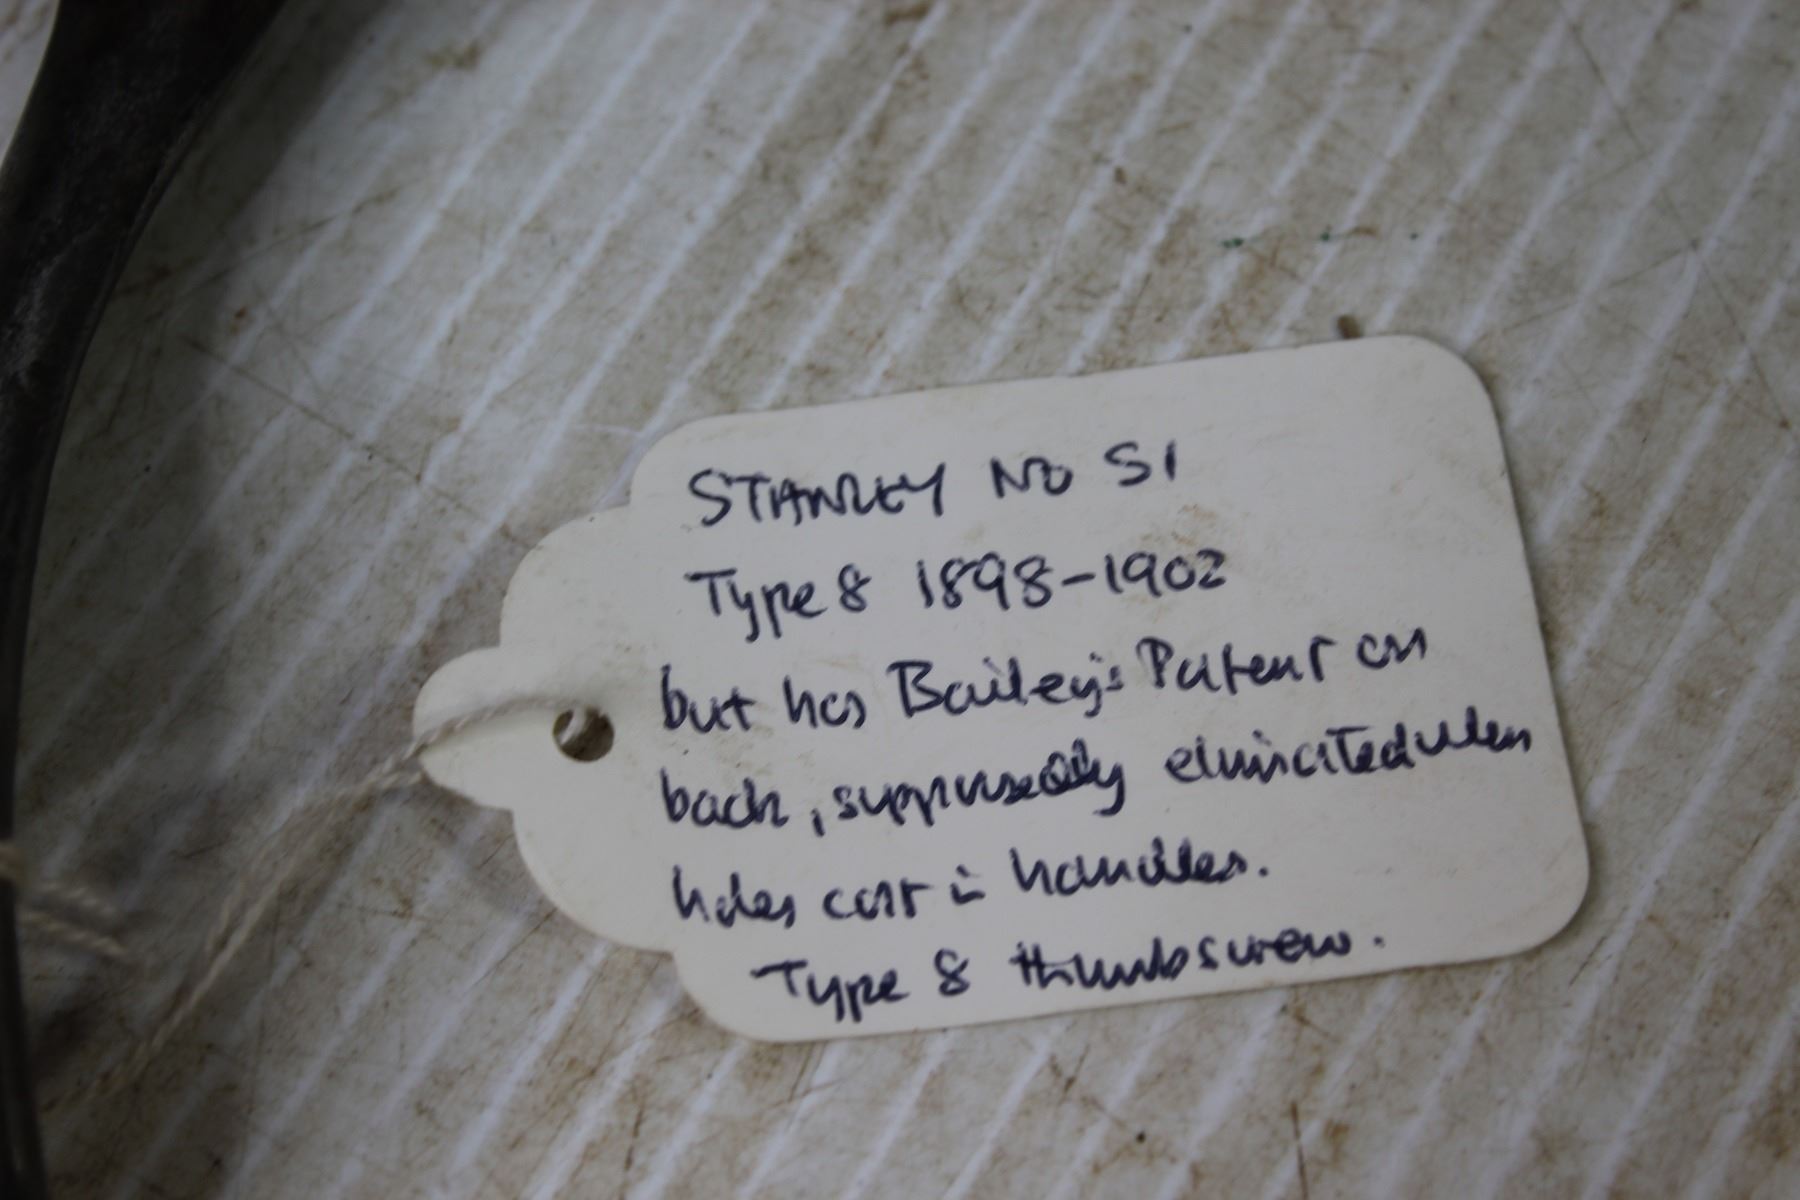 STANLEY NO 51
Type 8 1898-1902
but has Bailey's Patent on
back, supposedly elimiated when
holes cast in handles.
Type 8 thumbscrew.